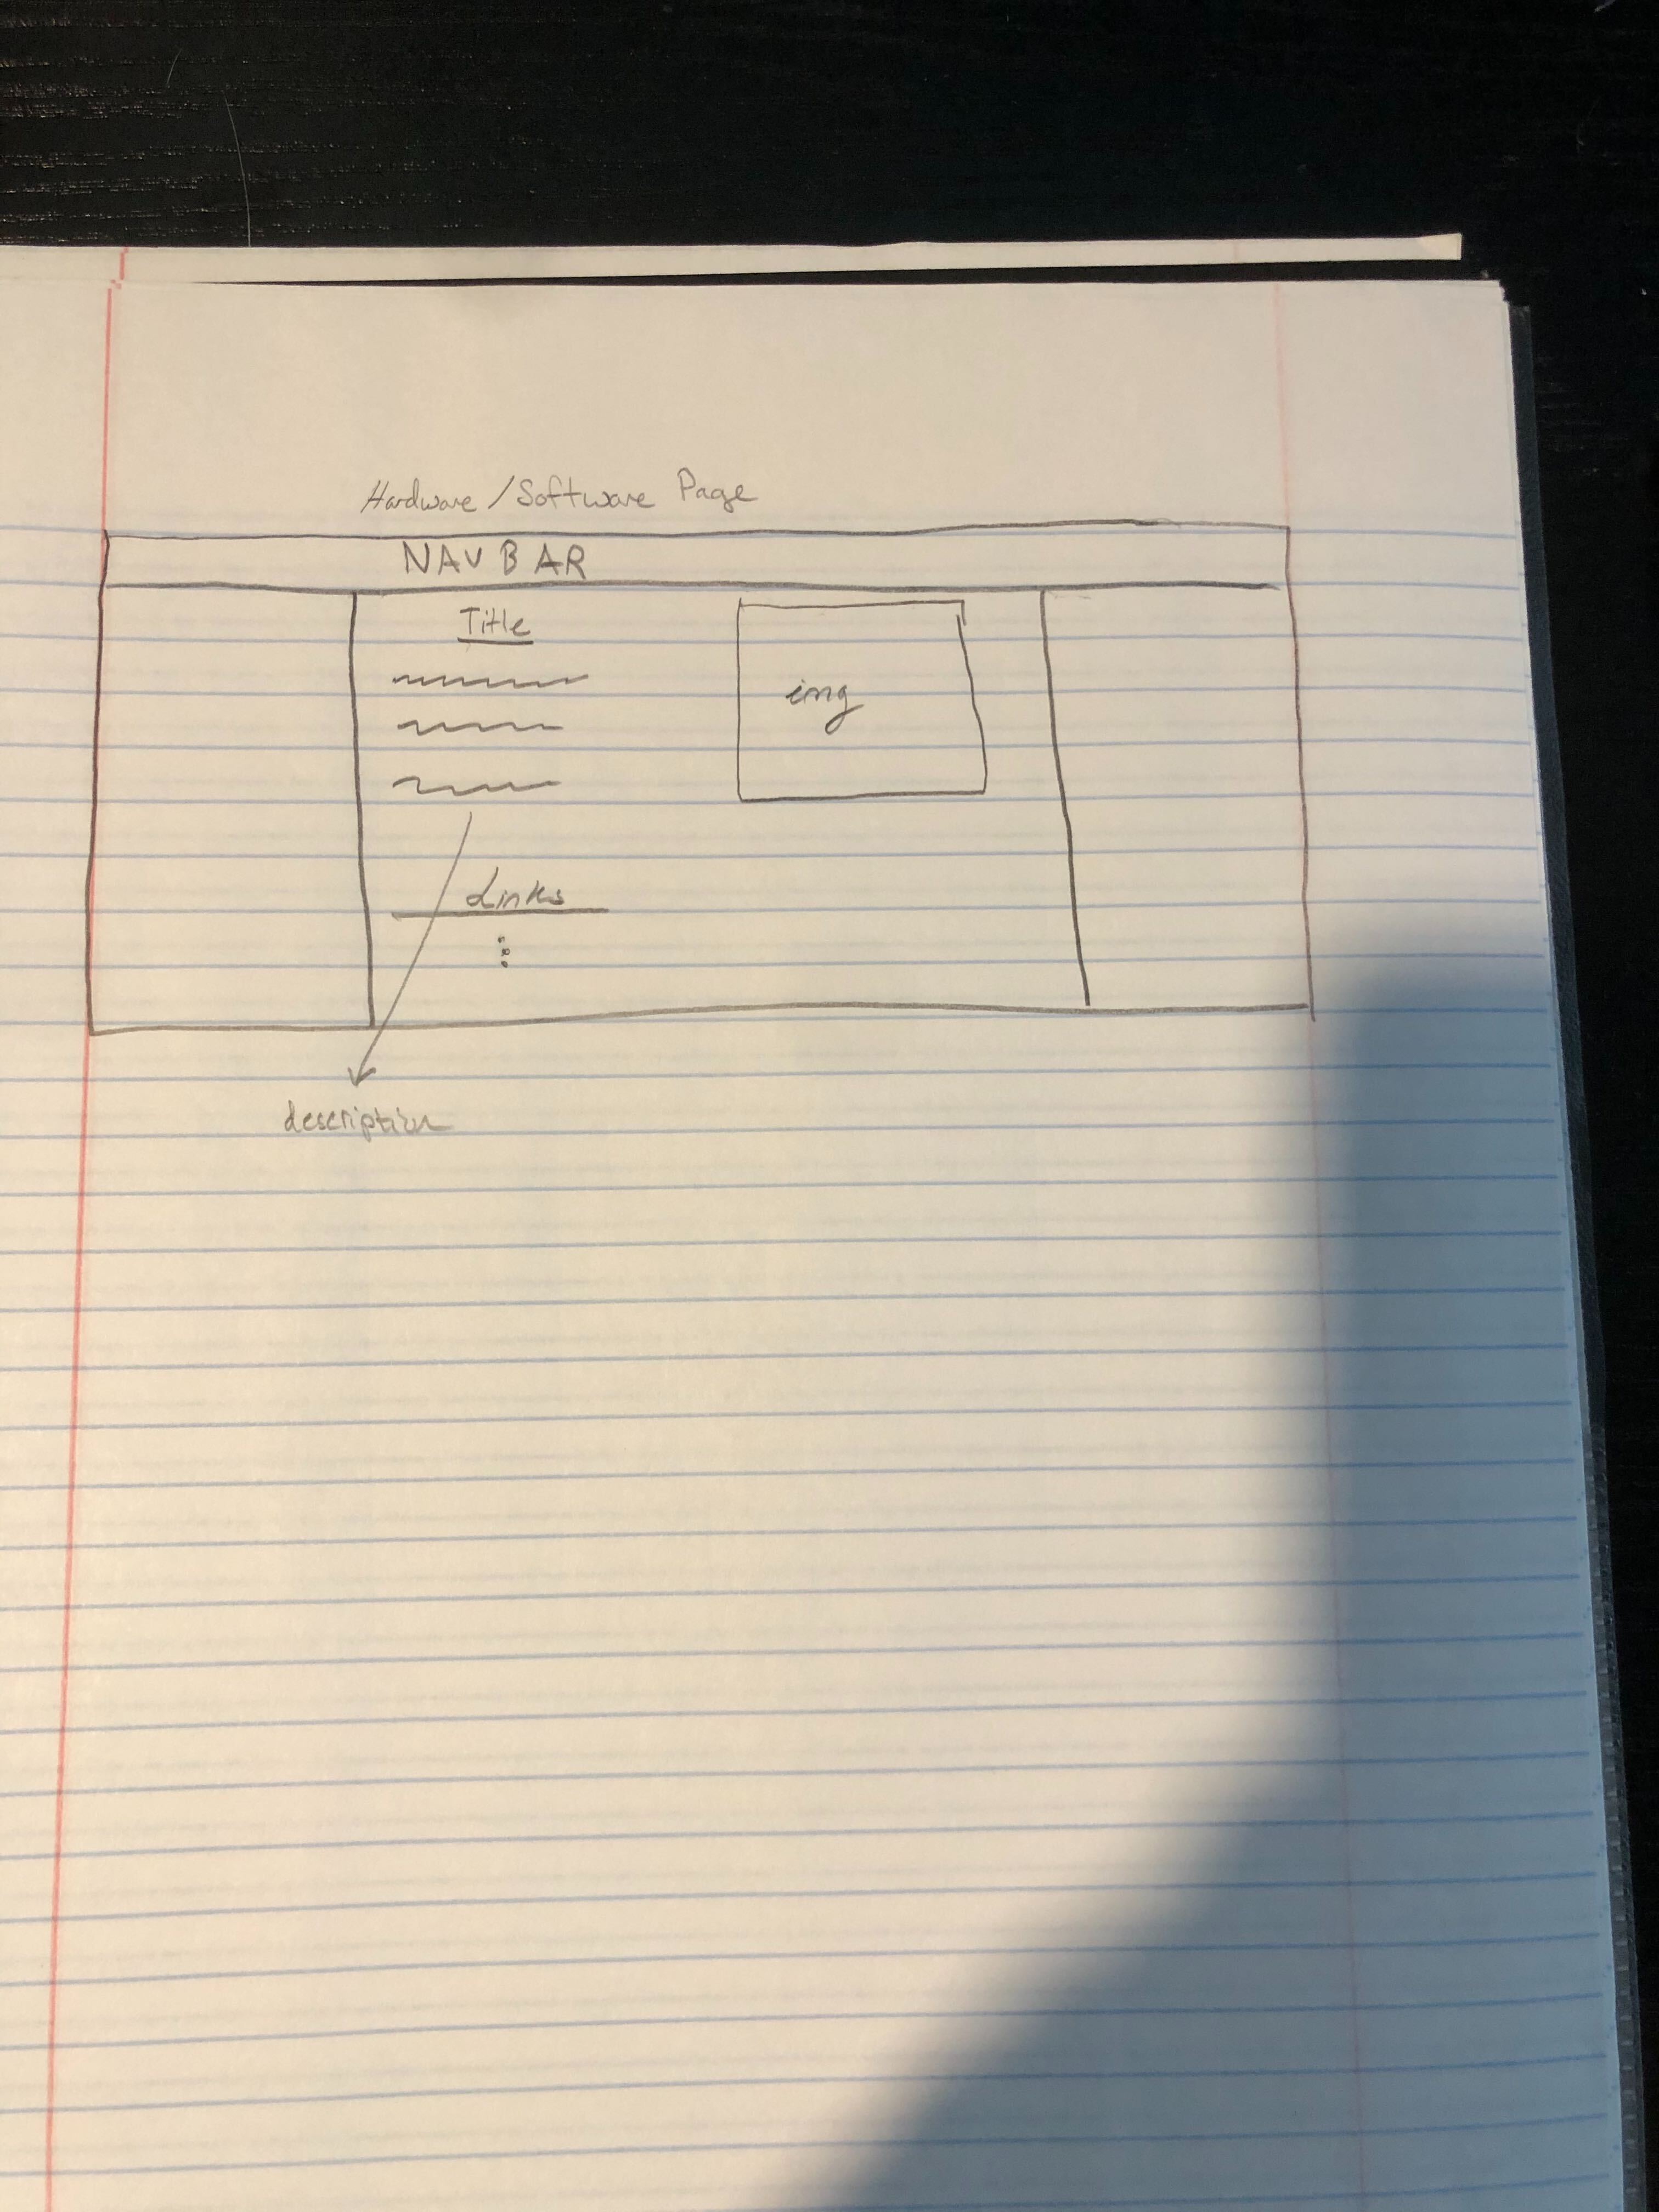 Hardware / Software Page
NAV BAR
Title
img
Links
description